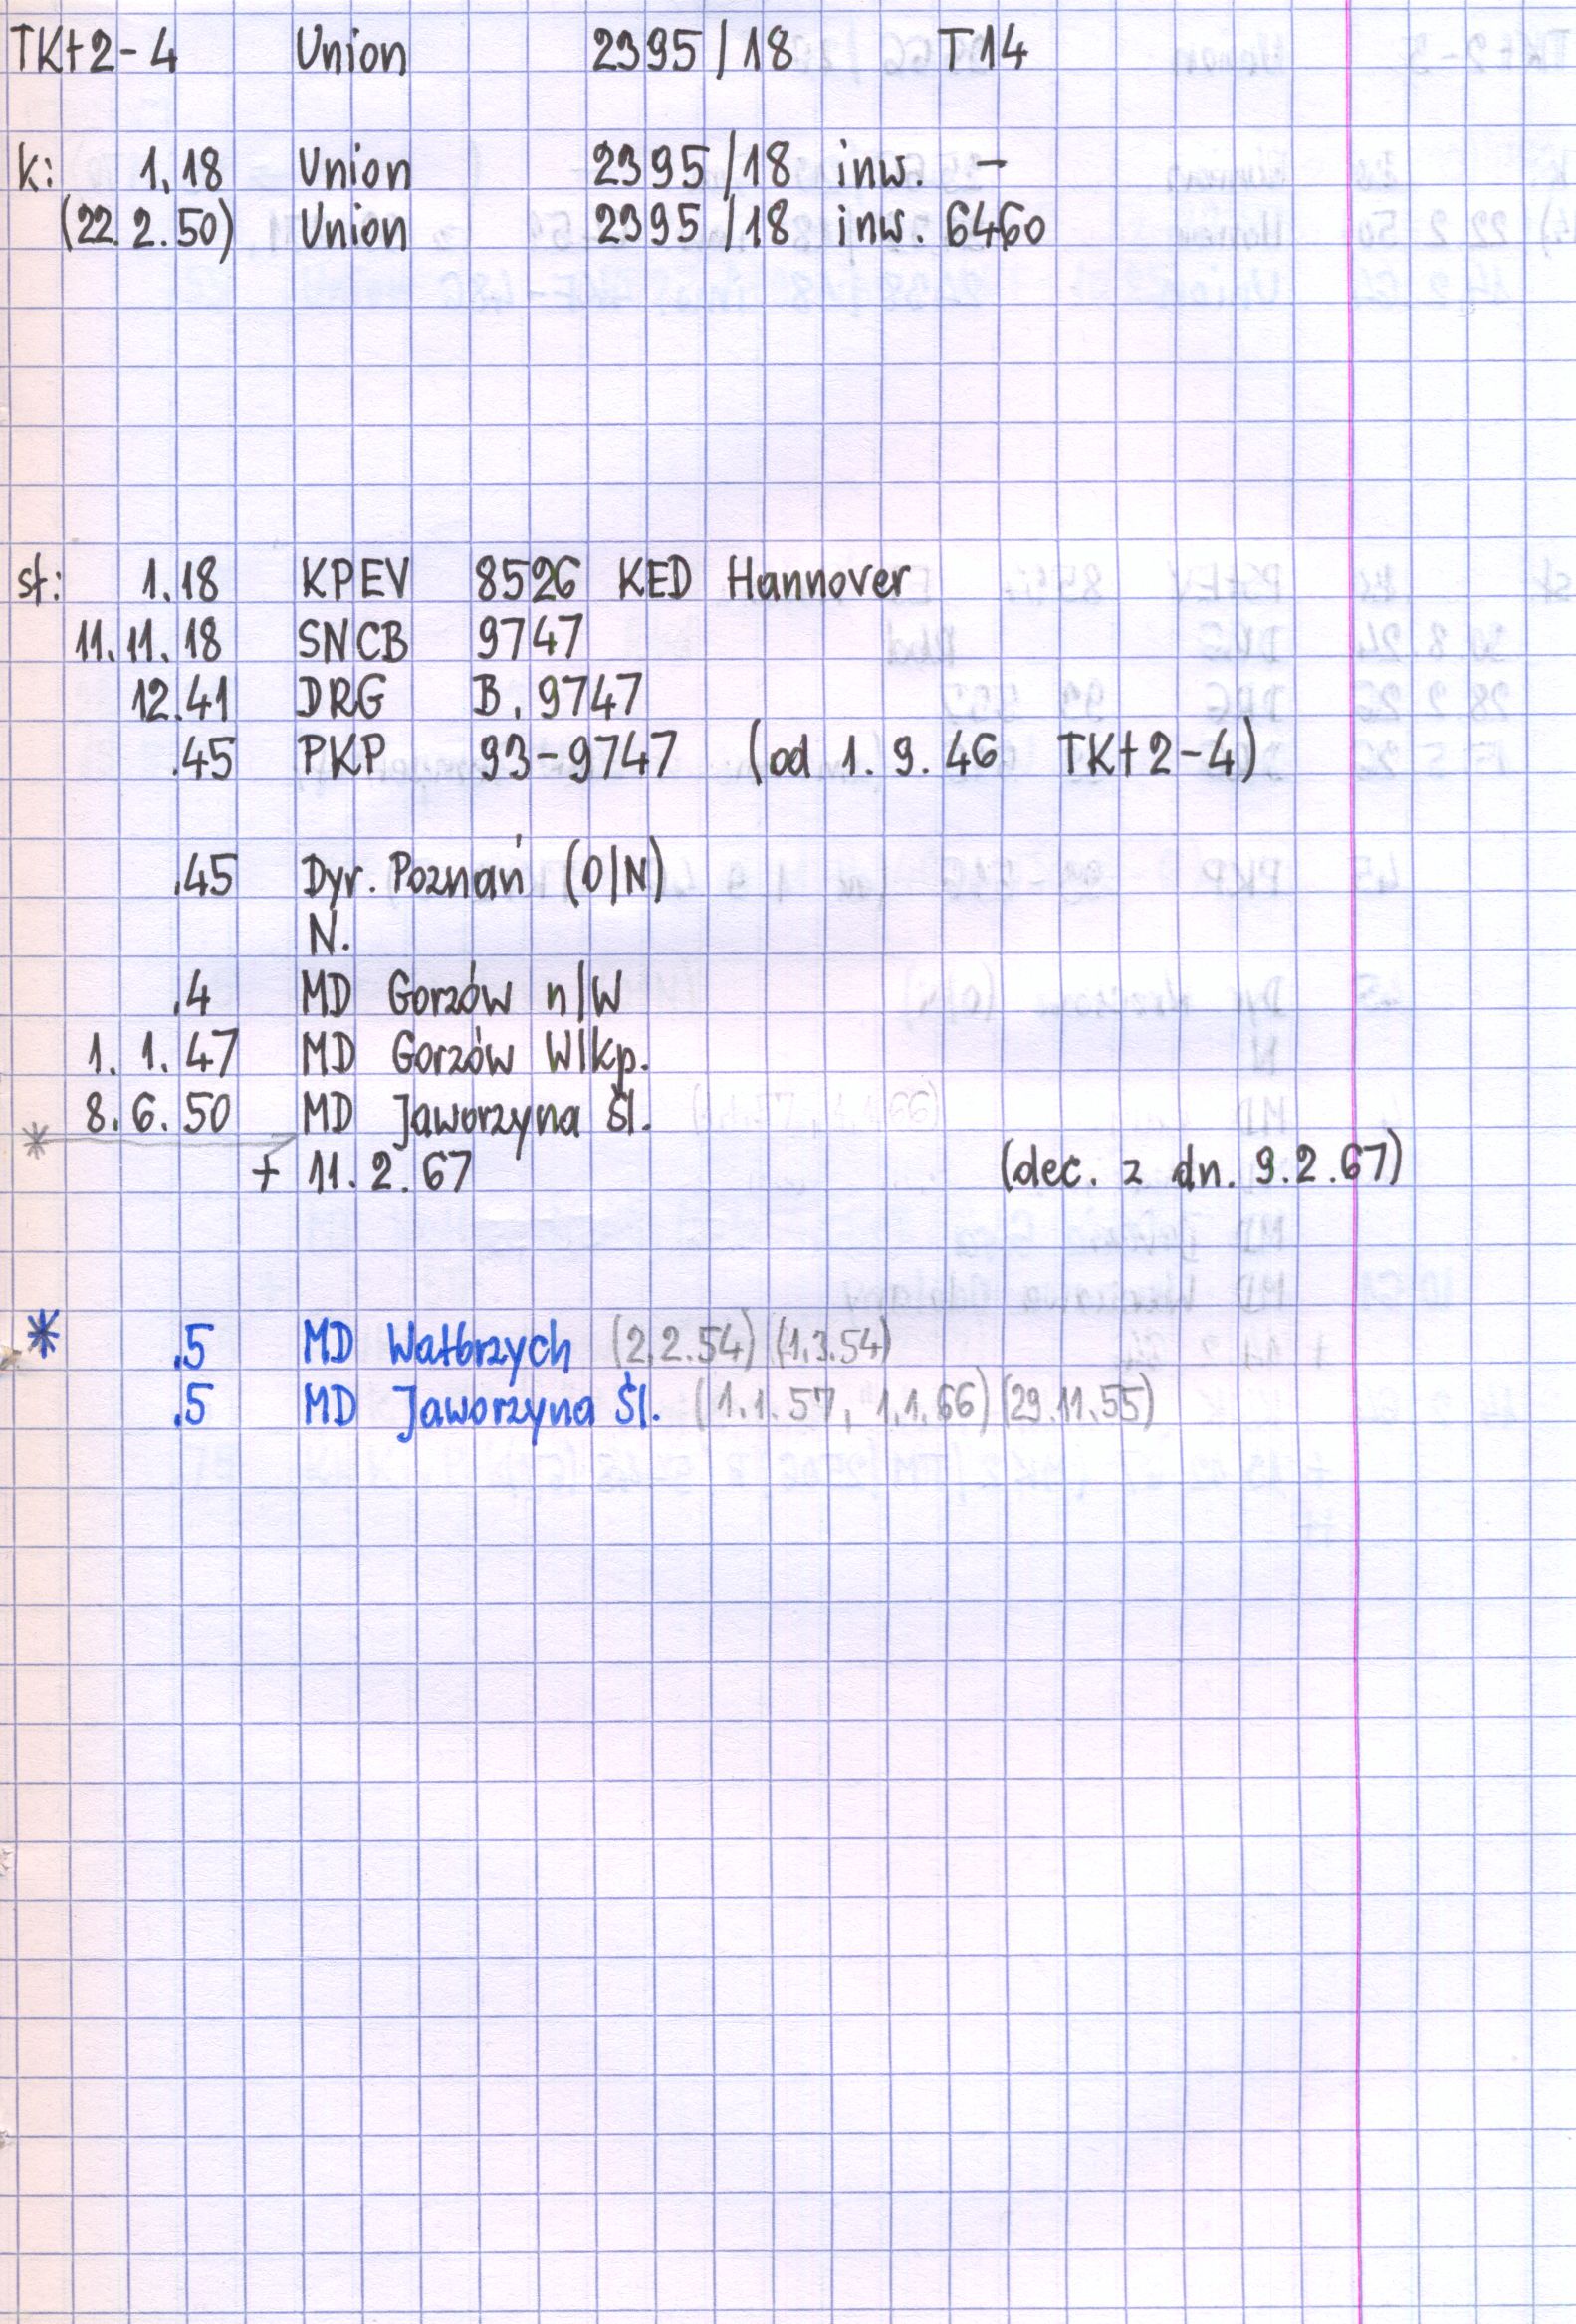 TKt2-4 Union 2395/18 T14
k: 1.18 Union 2395/18 inw. -
(22.2.50) Union 2395/18 inw. 6460
st: 1.18 KPEV 8526 KED Hannover
11.11.18 SNCB 9747
12.41 DRG B.9747
.45 PKP 93-9747 (od 1.9.46 TKt2-4)
.45 Dyr. Poznań (O/N)
N.
.4 MD Gorzów n/W
1.1.47 MD Gorzów Wlkp.
8.6.50 MD Jaworzyna Śl.
*
+ 11.2.67 (dec. z dn. 9.2.67)
* .5 MD Wałbrzych (2.2.54) (1.3.54)
.5 MD Jaworzyna Śl. (1.1.57, 1.1.66) (29.11.55)